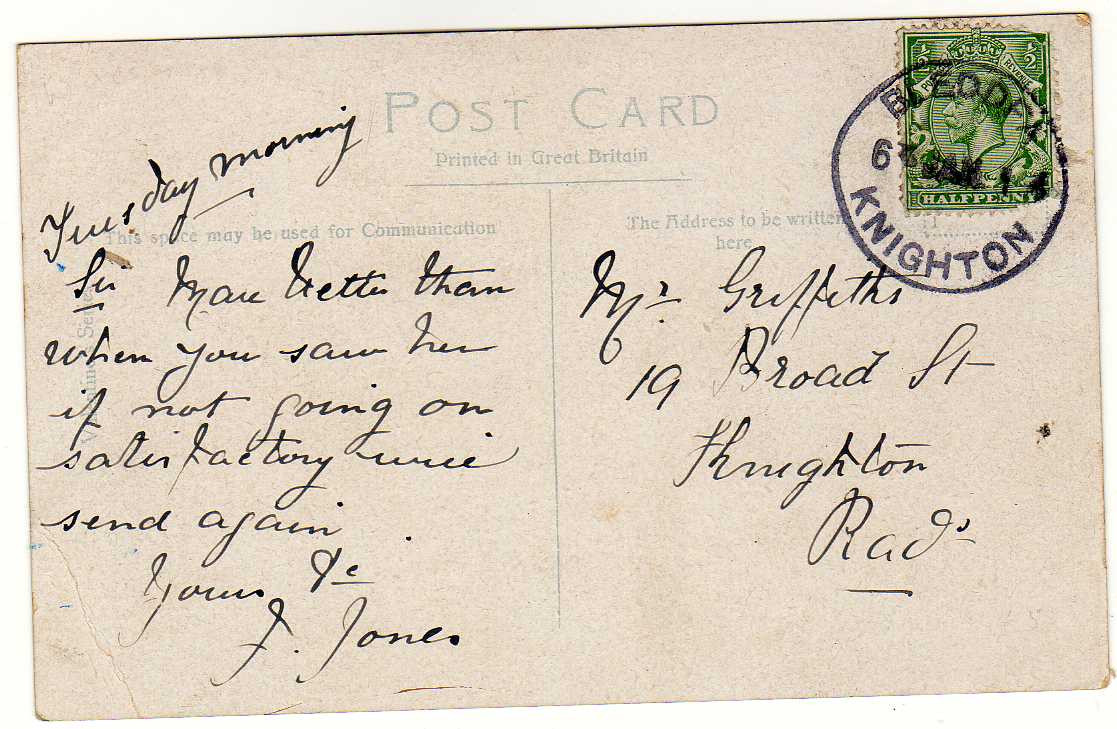 POST CARD
Printed in Great Britain
This space may be used for Communication
The Address to be written
here
Valentine's Series
½ ½
POSTAGE REVENUE
HALFPENNY
KNIGHTON
6 JA 14
Tuesday morning
Sir Mare better than
when you saw her
if not going on
satisfactory will
send again
Yours &c
J. Jones
Mr. Griffiths
19 Broad St
Knighton
Rads